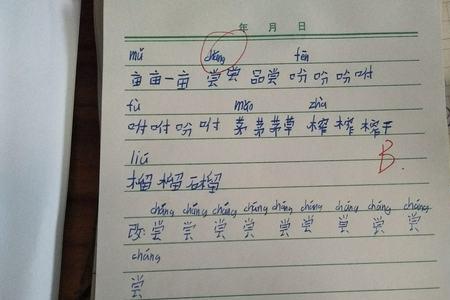 年 月 日
mǔ cháng fēn
亩 亩 一亩 尝 尝 品尝 吩 吩 吩咐
fù máo zhà
咐 咐 吩咐 茅 茅 茅草 榨 榨 榨干
liú
榴 榴 石榴
B.
cháng cháng cháng cháng cháng cháng cháng cháng cháng
改: 尝 尝 尝 尝 尝 尝 尝 尝 尝
cháng
尝